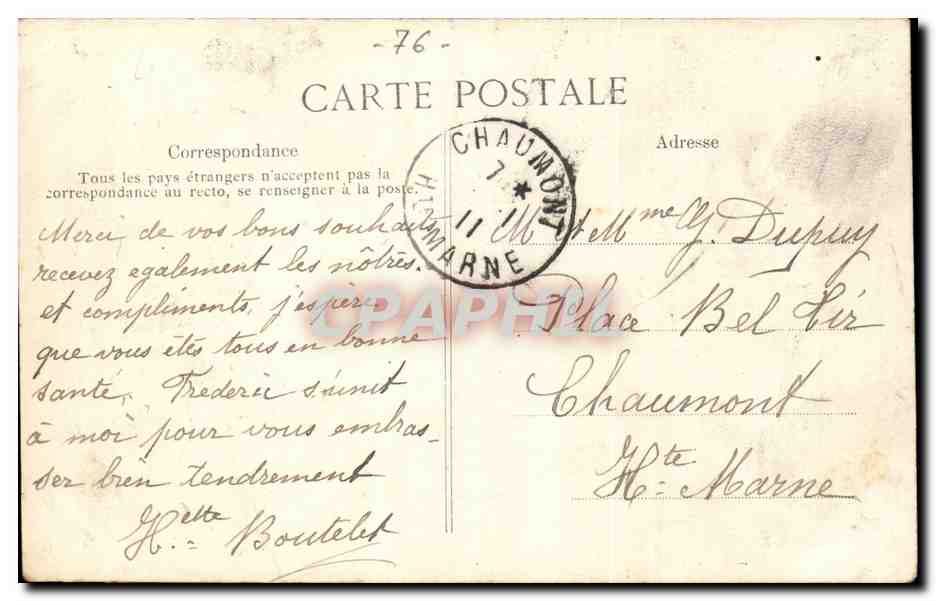 - 76 -
CARTE POSTALE
Correspondance
Tous les pays étrangers n'acceptent pas la
correspondance au recto, se renseigner à la poste.
Merci de vos bons souhaits
recevez également les nôtres.
et compliments, j'espère
que vous êtes tous en bonne
santé, Frédéric s'unit
à moi pour vous embras-
ser bien tendrement
H.elte Boutelet
CHAUMONT
7 *
11 11
HTE MARNE
Adresse
M et Mme G. Dupuy
Place Bel Air
Chaumont
Hte Marne
CPAPHIL